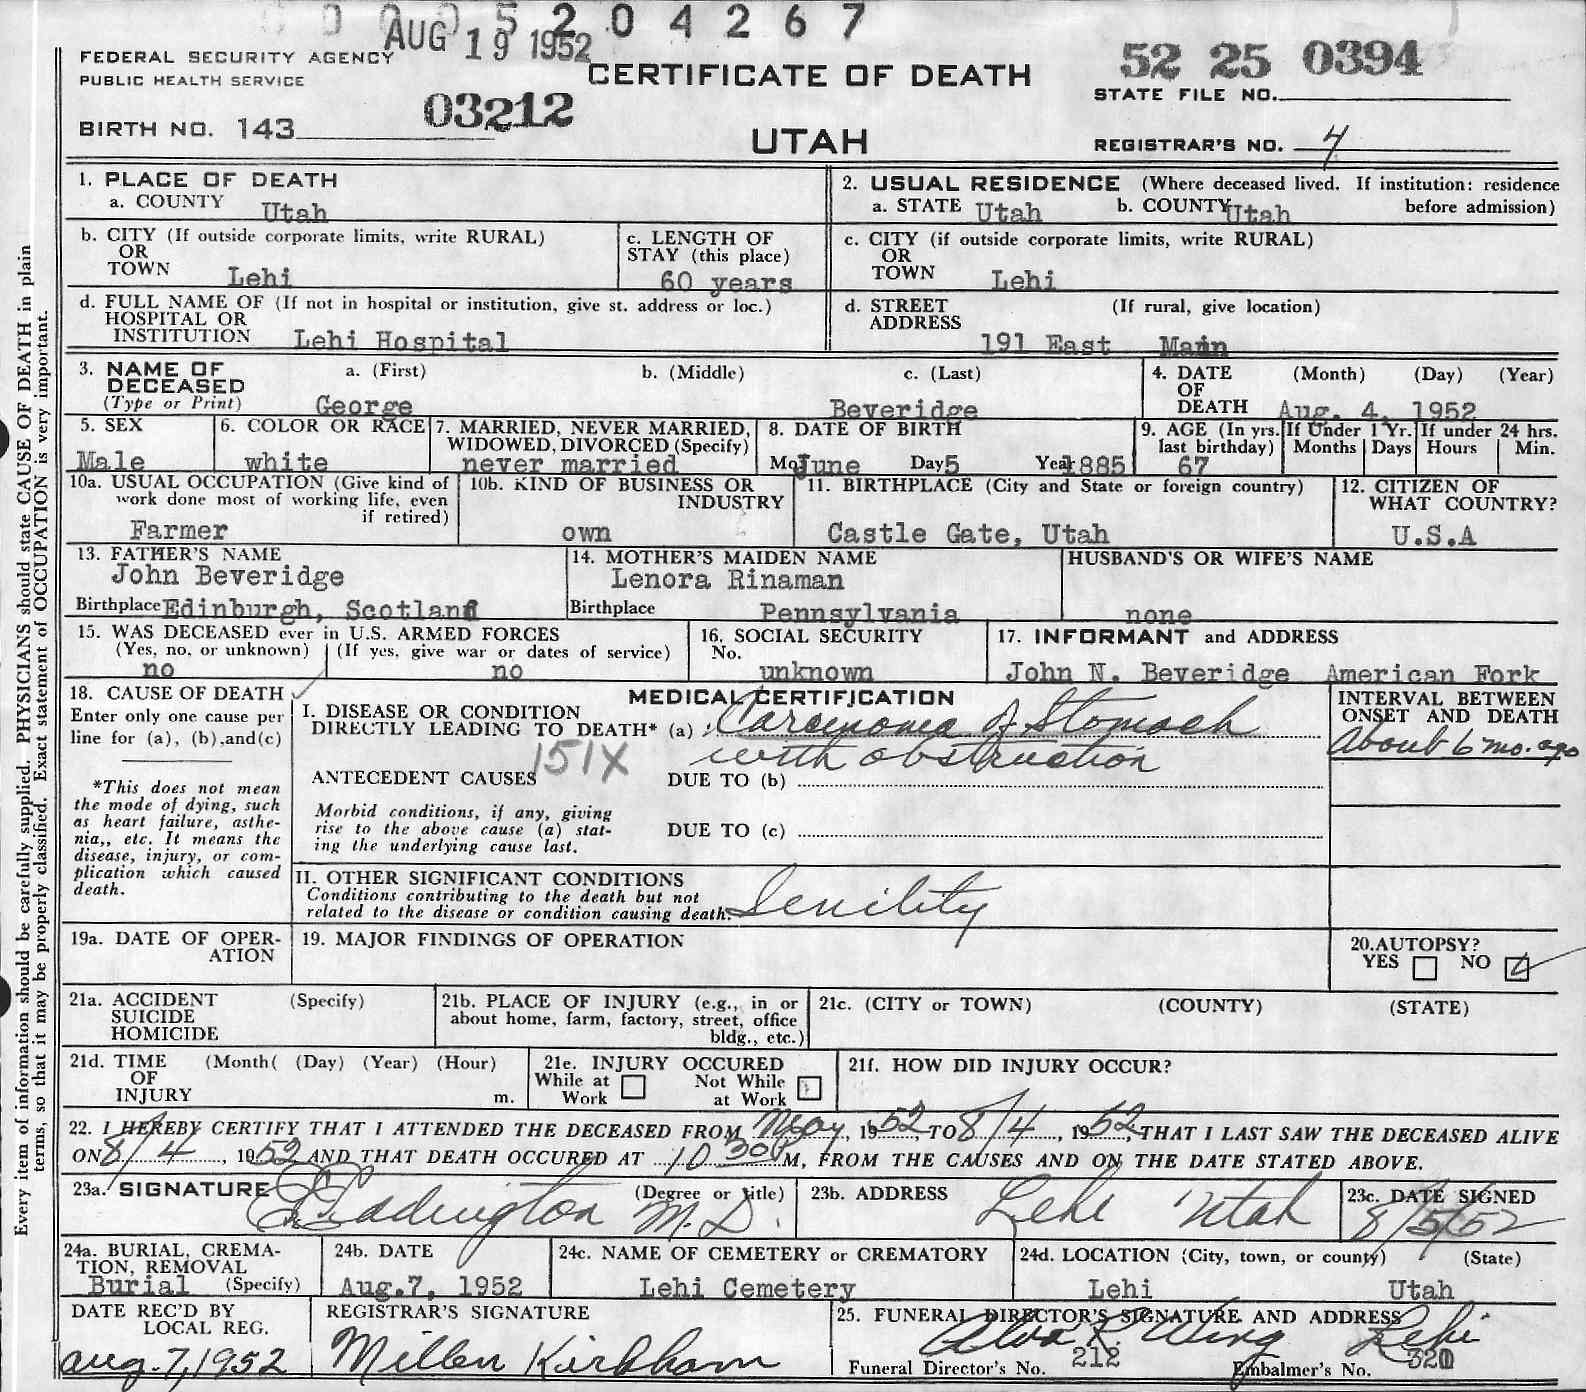 0 0 0 5 2 0 4 2 6 7
AUG 19 1952
FEDERAL SECURITY AGENCY
PUBLIC HEALTH SERVICE
CERTIFICATE OF DEATH
52 25 0394
STATE FILE NO.
BIRTH NO. 143
03212
UTAH
REGISTRAR'S NO. 4
1. PLACE OF DEATH
a. COUNTY Utah
2. USUAL RESIDENCE (Where deceased lived. If institution: residence before admission)
a. STATE Utah b. COUNTY Utah
b. CITY (If outside corporate limits, write RURAL)
OR
TOWN Lehi
c. LENGTH OF
STAY (this place)
60 years
c. CITY (if outside corporate limits, write RURAL)
OR
TOWN Lehi
d. FULL NAME OF (If not in hospital or institution, give st. address or loc.)
HOSPITAL OR
INSTITUTION Lehi Hospital
d. STREET (If rural, give location)
ADDRESS
191 East Main
3. NAME OF DECEASED
(Type or Print)
a. (First) b. (Middle) c. (Last)
George Beveridge
4. DATE OF DEATH (Month) (Day) (Year)
Aug. 4, 1952
5. SEX
Male
6. COLOR OR RACE
white
7. MARRIED, NEVER MARRIED,
WIDOWED, DIVORCED (Specify)
never married
8. DATE OF BIRTH
Mo June Day 5 Year 1885
9. AGE (In yrs. last birthday)
67
If Under 1 Yr.
Months Days
If under 24 hrs.
Hours Min.
10a. USUAL OCCUPATION (Give kind of
work done most of working life, even
if retired)
Farmer
10b. KIND OF BUSINESS OR
INDUSTRY
own
11. BIRTHPLACE (City and State or foreign country)
Castle Gate, Utah
12. CITIZEN OF
WHAT COUNTRY?
U.S.A
13. FATHER'S NAME
John Beveridge
Birthplace Edinburgh, Scotland
14. MOTHER'S MAIDEN NAME
Lenora Rinaman
Birthplace Pennsylvania
HUSBAND'S OR WIFE'S NAME
none
15. WAS DECEASED ever in U.S. ARMED FORCES
(Yes, no, or unknown) (If yes, give war or dates of service)
no no
16. SOCIAL SECURITY
No.
unknown
17. INFORMANT and ADDRESS
John N. Beveridge American Fork
18. CAUSE OF DEATH
Enter only one cause per
line for (a), (b), and (c)
*This does not mean
the mode of dying, such
as heart failure, asthe-
nia,, etc. It means the
disease, injury, or com-
plication which caused
death.
MEDICAL CERTIFICATION
I. DISEASE OR CONDITION
DIRECTLY LEADING TO DEATH* (a) Carcinoma of Stomach
with obstruction
151X
ANTECEDENT CAUSES
DUE TO (b)
Morbid conditions, if any, giving
rise to the above cause (a) stat-
ing the underlying cause last.
DUE TO (c)
INTERVAL BETWEEN
ONSET AND DEATH
About 6 mo. ago
II. OTHER SIGNIFICANT CONDITIONS
Conditions contributing to the death but not
related to the disease or condition causing death.
Senility
19a. DATE OF OPER-
ATION
19. MAJOR FINDINGS OF OPERATION
20. AUTOPSY?
YES NO
21a. ACCIDENT (Specify)
SUICIDE
HOMICIDE
21b. PLACE OF INJURY (e.g., in or
about home, farm, factory, street, office
bldg., etc.)
21c. (CITY or TOWN) (COUNTY) (STATE)
21d. TIME (Month( (Day) (Year) (Hour)
OF
INJURY m.
21e. INJURY OCCURED
While at Work Not While at Work
21f. HOW DID INJURY OCCUR?
22. I HEREBY CERTIFY THAT I ATTENDED THE DECEASED FROM May, 1952, TO 8/4, 1952, THAT I LAST SAW THE DECEASED ALIVE
ON 8/4, 1952 AND THAT DEATH OCCURED AT 10 30 M, FROM THE CAUSES AND ON THE DATE STATED ABOVE.
23a. SIGNATURE (Degree or title)
Eddington M.D.
23b. ADDRESS
Lehi Utah
23c. DATE SIGNED
8/5/52
24a. BURIAL, CREMA-
TION, REMOVAL
Burial (Specify)
24b. DATE
Aug. 7, 1952
24c. NAME OF CEMETERY or CREMATORY
Lehi Cemetery
24d. LOCATION (City, town, or county) (State)
Lehi Utah
DATE REC'D BY
LOCAL REG.
Aug. 7, 1952
REGISTRAR'S SIGNATURE
Millen Kirkham
25. FUNERAL DIRECTOR'S SIGNATURE AND ADDRESS
Wing Lehi
Funeral Director's No. 212 Embalmer's No. 320
Every item of information should be carefully supplied. PHYSICIANS should state CAUSE OF DEATH in plain
terms, so that it may be properly classified. Exact statement of OCCUPATION is very important.